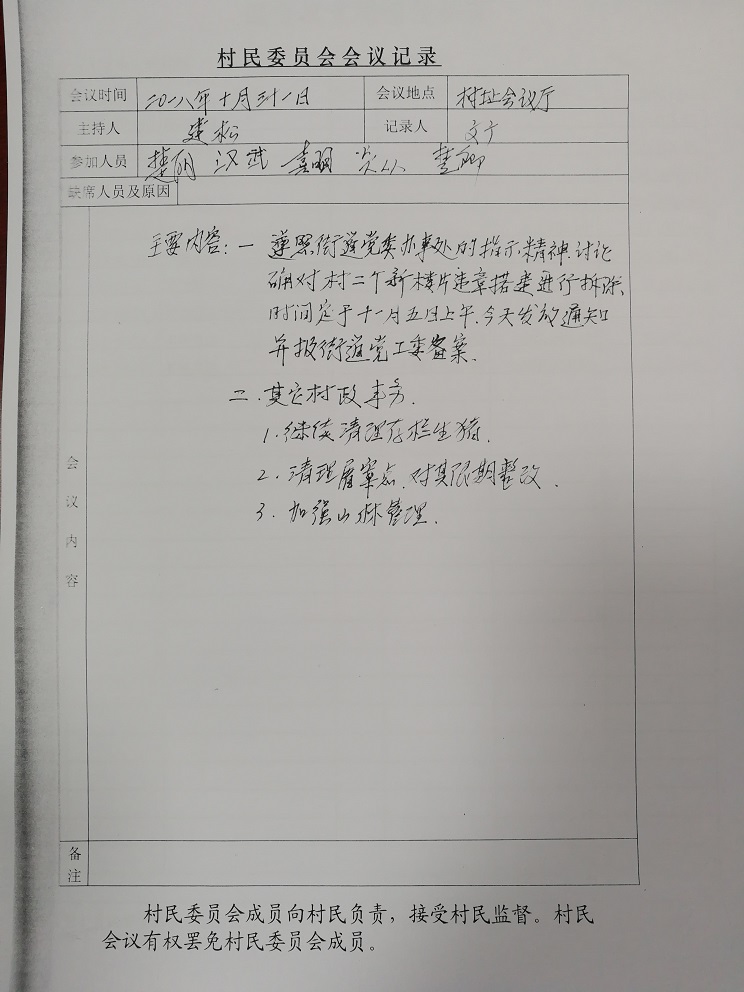 村民委员会会议记录
会议时间 二〇一八年十月三十一日 会议地点 村址会议厅
主持人 建松 记录人 文广
参加人员 楚丽 汉武 喜明 楚卿
缺席人员及原因
会议内容
主要内容：一 遵照街道党委办事处的指示精神.讨论
确对村二个新楼片违章搭建进行拆除、
时间定于十一月五日上午.今天发放通知
并报街道党工委备案.
二.其它村政事务.
1.继续清理存栏生猪.
2.清理屠宰点.对其限期整改.
3.加强山林管理.
备注
村民委员会成员向村民负责，接受村民监督。村民
会议有权罢免村民委员会成员。